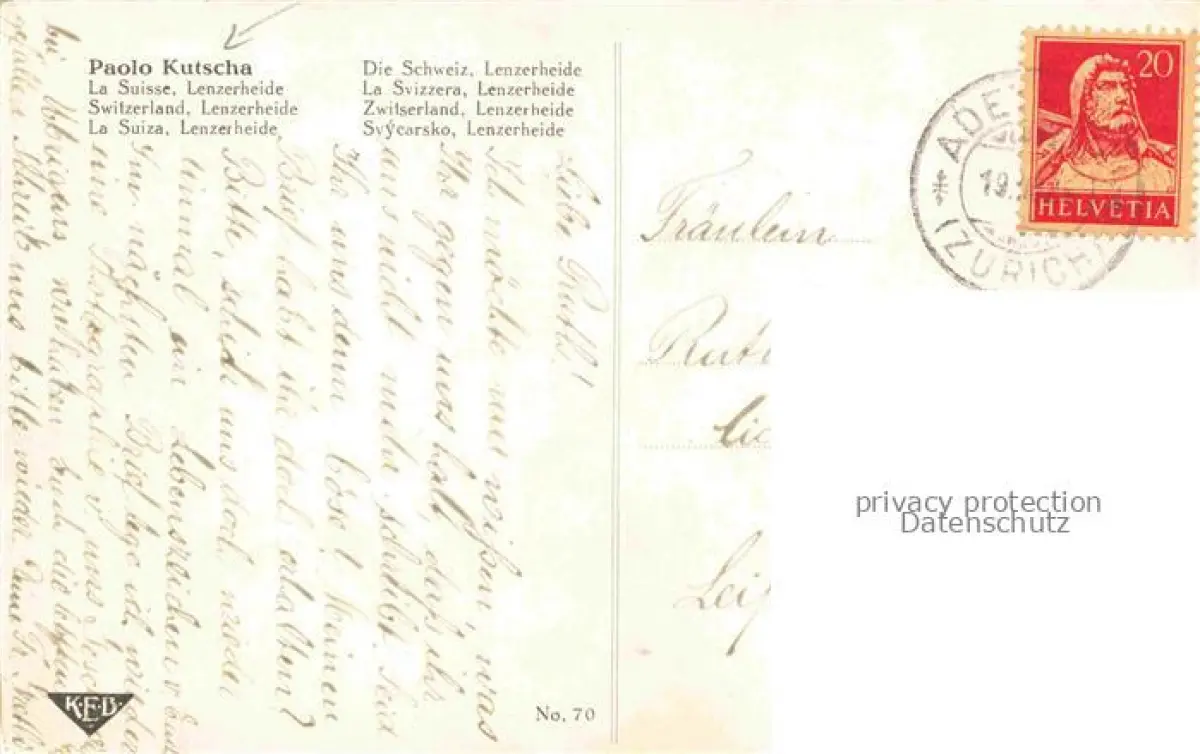 Paolo Kutscha
La Suisse, Lenzerheide
Switzerland, Lenzerheide
La Suiza, Lenzerheide
Die Schweiz, Lenzerheide
La Svizzera, Lenzerheide
Zwitserland, Lenzerheide
Svýcarsko, Lenzerheide
Liebe Ruth!
Ich möchte nur wissen, was
Ihr gegen uns habt, daß ihr
uns nicht mehr schreibt. Seid
Ihr uns denn böse? Meinen
Brief habt ihr doch erhalten?
Bitte, schick uns doch wieder
einmal ein Lebenszeichen v. Euch
Im nächsten Brief lege ich wieder
eine Photographie v. uns
bei. Übrigens
Schreib uns bitte wieder
K.E.B.
No. 70
Fräulein
Ruth
Leip
20
HELVETIA
(ZÜRICH)
19.
privacy protection
Datenschutz